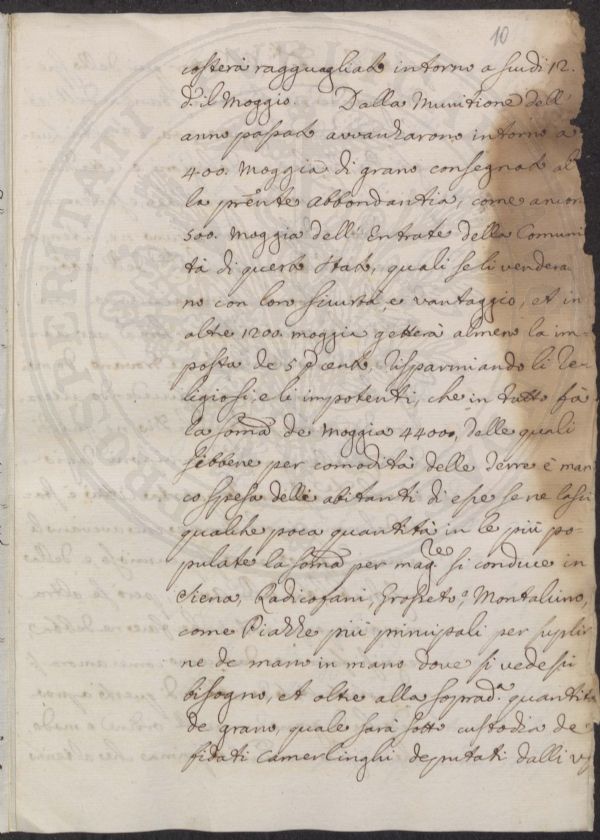 10
costerà ragguagliato intorno a scudi 12.
d. il Moggio. Dalla Munitione dell
anno passato avvanzarono intorno a
400. Moggia di grano consegnato al
la pnte Abbondantia, come ancor
500. Moggia delli Entrate della Comuni
tà di questo Stato, quali seli vendera
no con loro sicurtà, e vantaggio, et in
oltre 1200. moggia getterà almeno la im=
posta de 5 p cento, risparmiando li Re=
ligiosi, e li impotenti, che in tutto fà
la soma de Moggia 44000, delle quali
sebbene per comodità delle Terre è man
co spesa delli abitanti di esse se ne lasci
qualche poca quantità in le più po=
pulate la soma per mag.re si conduce in
Siena, Radicofani, Grosseto, Montalcino,
come Piazze più principali per suplir
ne de mano in mano dove si vedesse
bisogno, et oltre alla soprad.a quantità
de grano, quale sarà sotto custodia de
fidati Camerlinghi deputati dalli